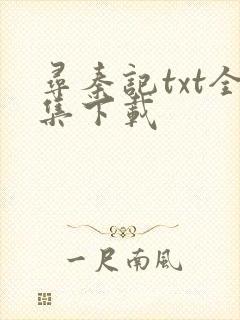 尋秦記txt全
集下載
一尺南風